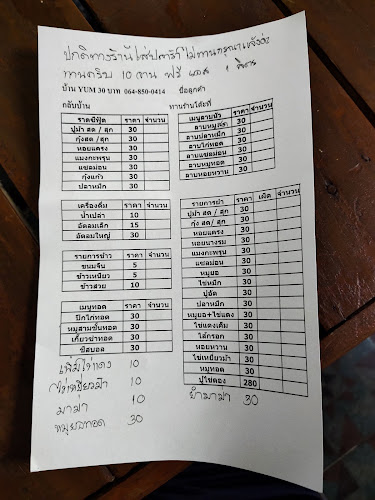 ปกติทางร้านใส่ปลาร้า ไม่ทานกรุณาแจ้งค่ะ
ทานครบ 10 จาน ฟรี 1
บ้าน YUM 30 บาท 064-850-0414 ชื่อลูกค้า
กลับบ้าน ทานร้านโต๊ะที่
ราคซีฟู้ด ราคา จำนวน
ปูม้า สด / สุก 30
กุ้งสด / สุก 30
หอยแครง 30
แมงกะพรุน 30
แซลม่อน 30
กุ้งแก้ว 30
ปลาหมึก 30
เมนูลาบมั่ว ราคา จำนวน
ลาบหมูสับ 30
ลาบปลาหมึก 30
ลาบไก่ทอด 30
ลาบแซลม่อน 30
ลาบหมูทอด 30
ลาบหอยหวาน 30
เครื่องดื่ม ราคา จำนวน
น้ำเปล่า 10
อัดลมเล็ก 15
อัดลมใหญ่ 30
รายการข้าว ราคา จำนวน
ขนมจีน 5
ข้าวเหนียว 5
ข้าวสวย 10
เมนูทอด ราคา จำนวน
ปีกไก่ทอด 30
หมูสามชั้นทอด 30
เกี๊ยวซ่าทอด 30
ชีสบอล 30
รายการยำ ราคา เผ็ด จำนวน
ปูม้า สด / สุก 30
กุ้ง สด/ สุก 30
หอยแครง 30
หอยนางรม 30
แมงกะพรุน 30
แซลม่อน 30
หมูยอ 30
ไข่หมึก 30
ปูอัด 30
ปลาหมึก 30
หมูยอ+ไข่แดง 30
ไข่แดงเค็ม 30
ไส้กรอก 30
หอยหวาน 30
ไข่เยี่ยวม้า 30
หมูทอด 30
ปูไข่ดอง 280
เพิ่มไข่แดง 10
ไข่เยี่ยวม้า 10
มาม่า 10
หมูยอทอด 30
ยำมาม่า 30